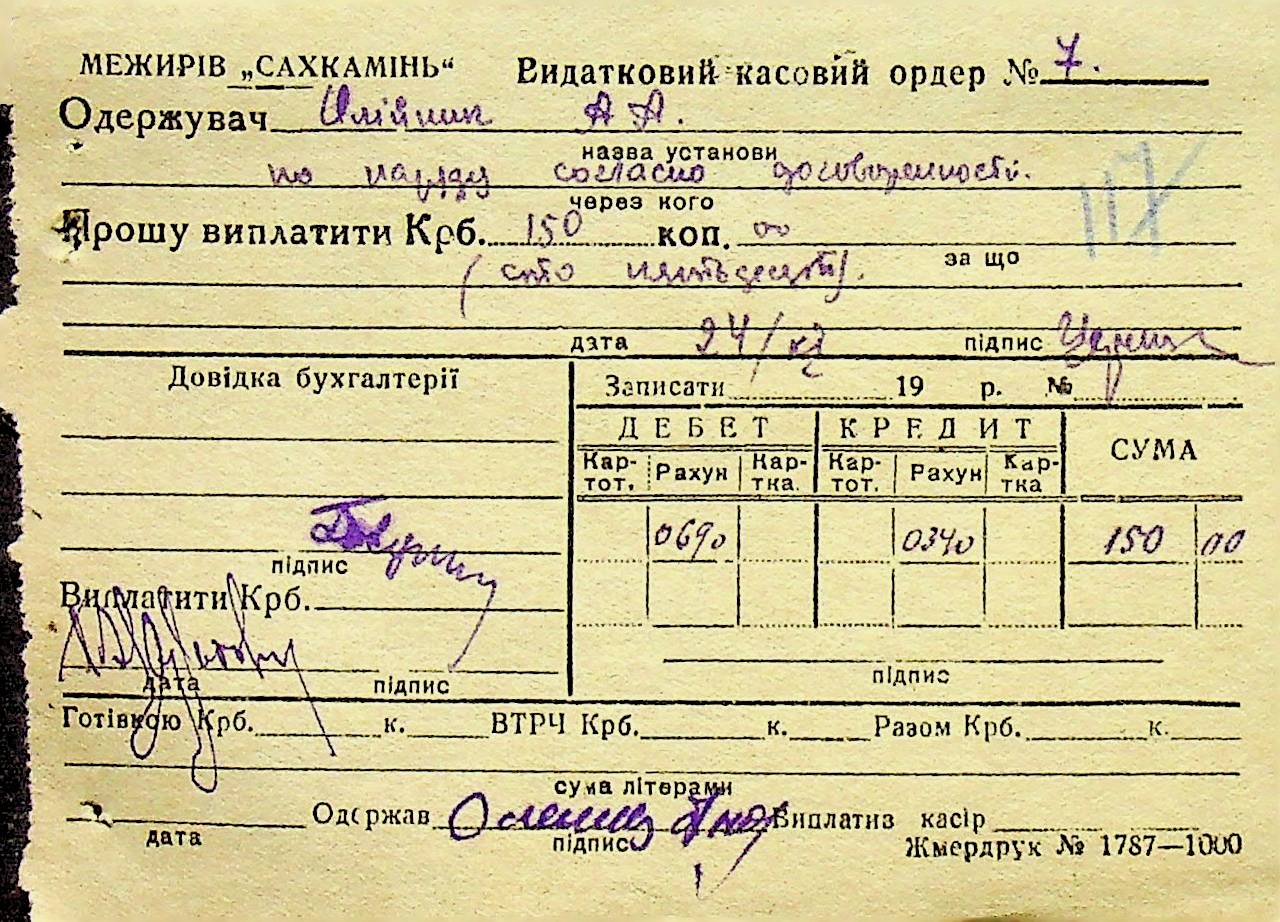 МЕЖИРІВ „САХКАМІНЬ“ Видатковий касовий ордер № 7.
Одержувач Олійник А А.
назва установи
по наряду согласно договоренности.
через кого
Прошу виплатити Крб. 150 коп. 00
за що
(сто пятьдесят).
дата 24/ підпис
Довідка бухгалтерії
Записати 19 р. №
ДЕБЕТ КРЕДИТ СУМА
Кар-тот. Рахун Кар-тка. Кар-тот. Рахун Кар-тка
0690 0340 150 00
підпис
Виплатити Крб.
дата підпис
підпис
Готівкою Крб. к. ВТРЧ Крб. к. Разом Крб. к.
сума літерами
Одержав Виплатив касір
дата підпис
Жмердрук № 1787—1000